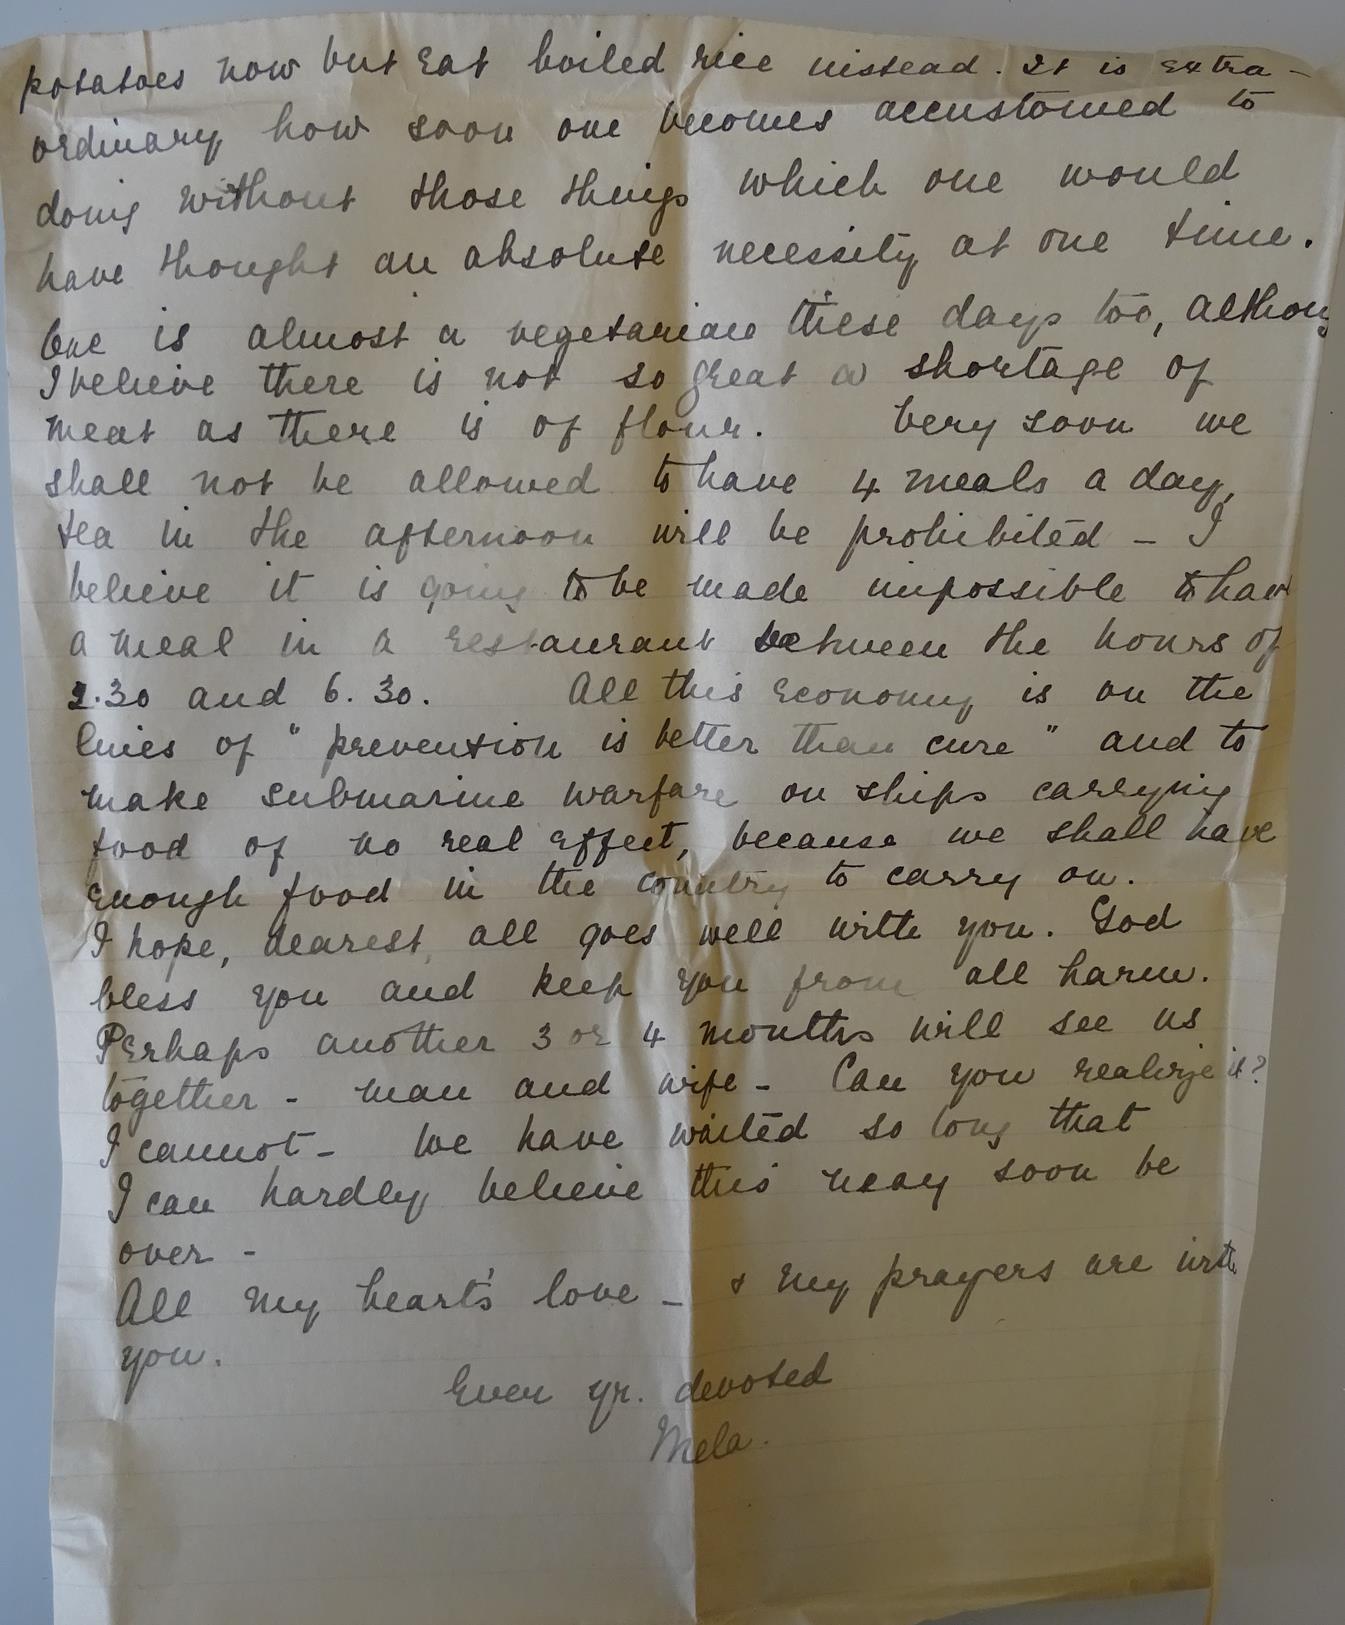 potatoes now but eat boiled rice instead. It is extra-
ordinary how soon one becomes accustomed to
doing without those things which one would
have thought an absolute necessity at one time.
One is almost a vegetarian these days too, althoug
I believe there is not so great a shortage of
meat as there is of flour. Very soon we
shall not be allowed to have 4 meals a day,
tea in the afternoon will be prohibited - I
believe it is going to be made impossible to have
a meal in a restaurant between the hours of
2.30 and 6.30. All this economy is on the
lines of "prevention is better than cure" and to
make submarine warfare on ships carrying
food of no real effect, because we shall have
enough food in the country to carry on.
I hope, dearest, all goes well with you. God
bless you and keep you from all harm.
Perhaps another 3 or 4 months will see us
together - man and wife - Can you realize it?
I cannot - We have waited so long that
I can hardly believe this may soon be
over -
All my heart's love - & my prayers are with
you.
Ever yr. devoted
Mela.